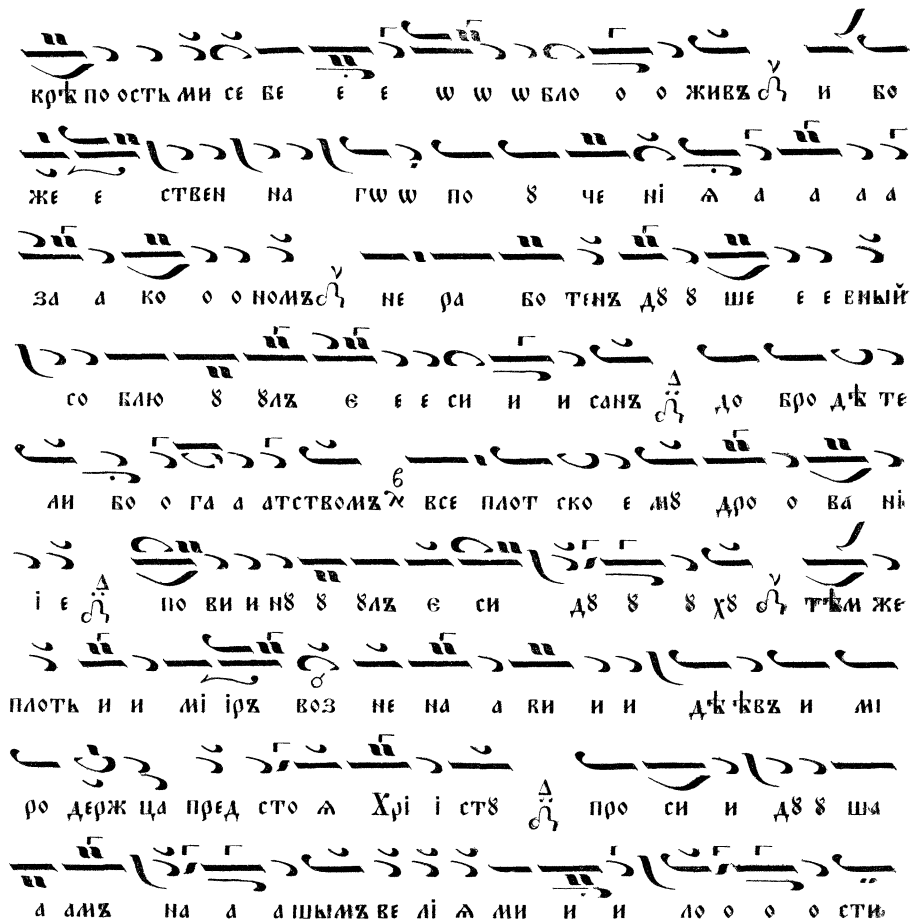 крѣ по ость ми се бе е е ѡ ѡ ѡ бло о о живъ и бо
же е ствен на гѡ ѡ по ȣ че ні ѧ а а а а
за а ко о о номъ не ра бо тенъ дȣ ȣ ше е е вный
со блю ȣ ȣлъ є е е си и и санъ до бро дѣ те
ли бо о га а атствомъ все плот ско е мȣ дро о ва ні
і е по ви и нȣ ȣ ȣлъ є си дȣ ȣ ȣ хȣ тѣм же
плоть и и мі іръ воз не на а ви и и дѣ ѣвъ и мі
ро держ ца пред сто ѧ Хрі і стȣ про си и дȣ ȣ ша
а амъ на а а шымъ ве лі ѧ ми и и ло о о о сти